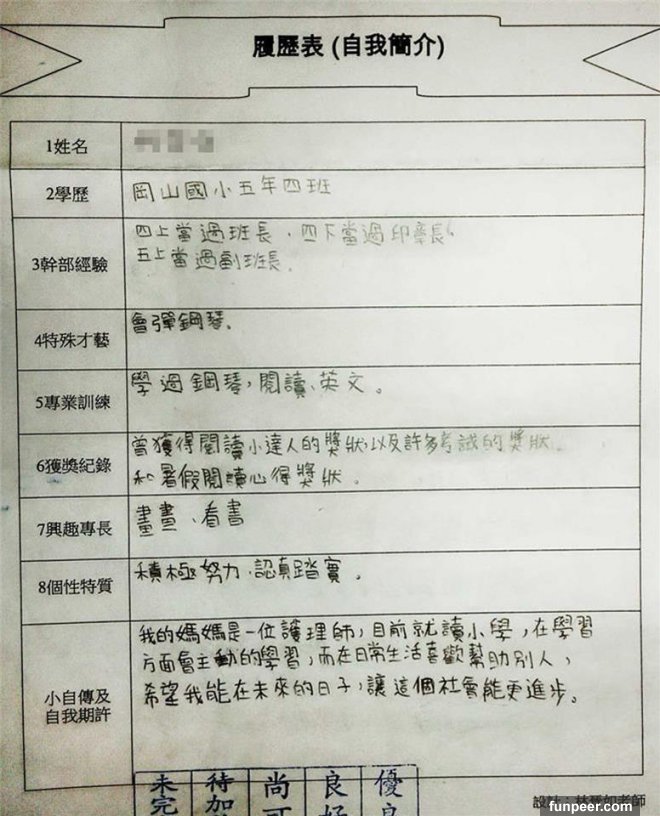 履歷表 (自我簡介)
1姓名
2學歷
岡山國小五年四班
3幹部經驗
四上當過班長、四下當過
五上當過副班長。
4特殊才藝
會彈鋼琴。
5專業訓練
學過鋼琴,閱讀、英文。
6獲獎紀錄
曾獲得閱讀小達人的獎狀,以及許多考試的獎狀
和暑假閱讀心得獎狀。
7興趣專長
畫畫、看書
8個性特質
積極努力、認真踏實。
小自傳及
自我期許
我的媽媽是一位護理師,目前就讀小學,在學習
方面會主動的學習,而在日常生活喜歡幫助別人,
希望我能在未來的日子,讓這個社會能更進步。
未完 待加 尚可 良好 優良
設計:林 如老師
funpeer.com